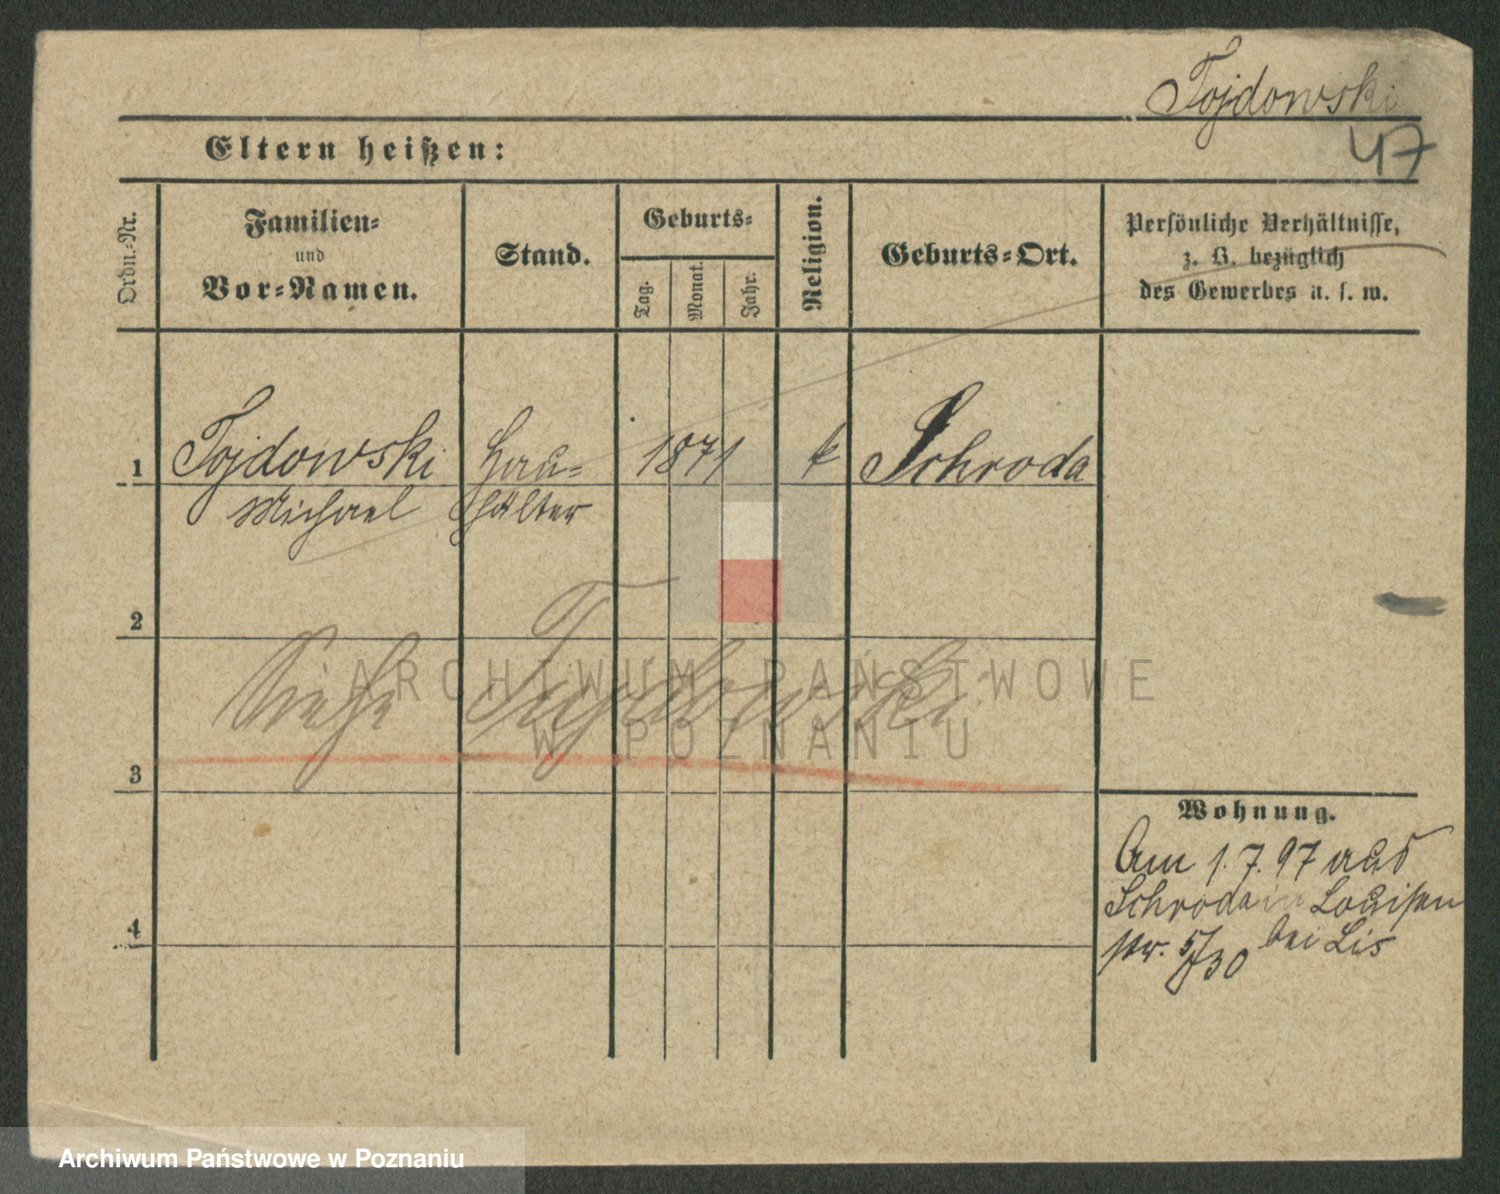 Tojdowski
47
Eltern heißen:
Ordn.-Nr.
Familien-
und
Vor-Namen.
Stand.
Geburts-
Tag.
Monat.
Jahr.
Religion.
Geburts-Ort.
Persönliche Verhältnisse,
z. B. bezüglich
des Gewerbes u. s. w.
1
Tojdowski
Michael
Hau-
hälter
1871
k
Schroda
2
Siehe Tujdowski
ARCHIWUM PAŃSTWOWE
W POZNANIU
3
Wohnung.
Am 1.7.97 aus
Schroda in Louisen
str. 5/30 bei Lis
4
Archiwum Państwowe w Poznaniu